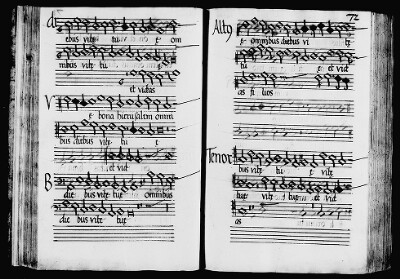 ebus vitę tu ę om
nibus vitę tu
et vidias
V
ę bona hierusalem omni
bus diebus vitę tu ę
et vid
B
die bus vitę tuę omnibus
die bus vitę tuę
72
Alty
ę omnibus diebus vi tę
tu ę et vid
as fi lios
Tenor
bus vitę tu ę vitę
tuę vitę tuę et vid
as